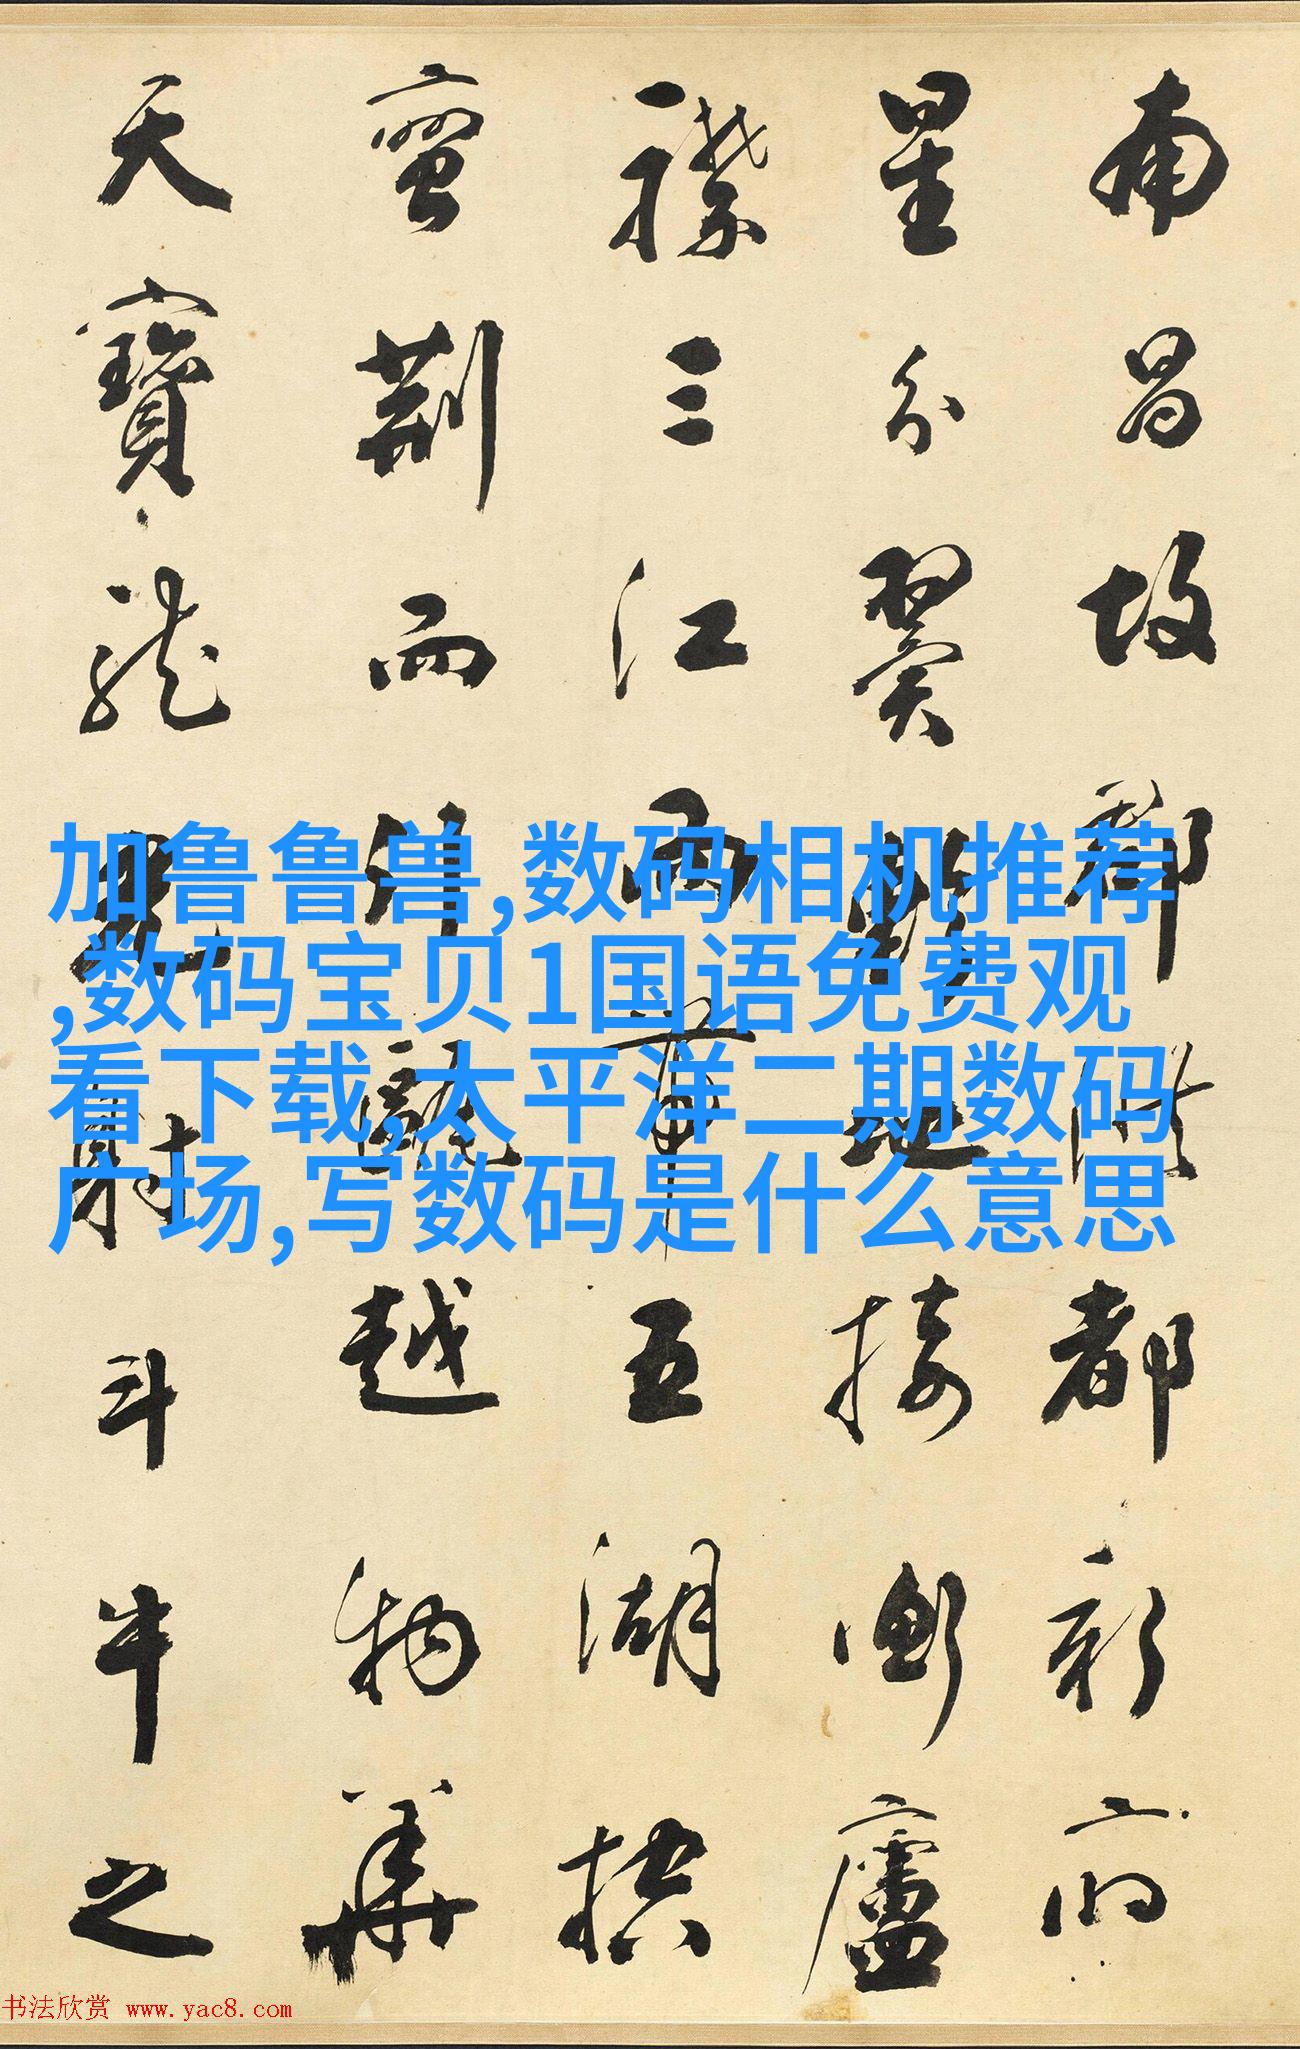 南昌故郡洪都新府
星分翼軫地接衡廬
襟三江而帶五湖控
蠻荊而引甌越物華
天寶龍光射斗牛之
加鲁鲁兽,数码相机推荐
,数码宝贝1国语免费观
看下载,太平洋二期数码
广场,写数码是什么意思
书法欣赏 www.yac8.com